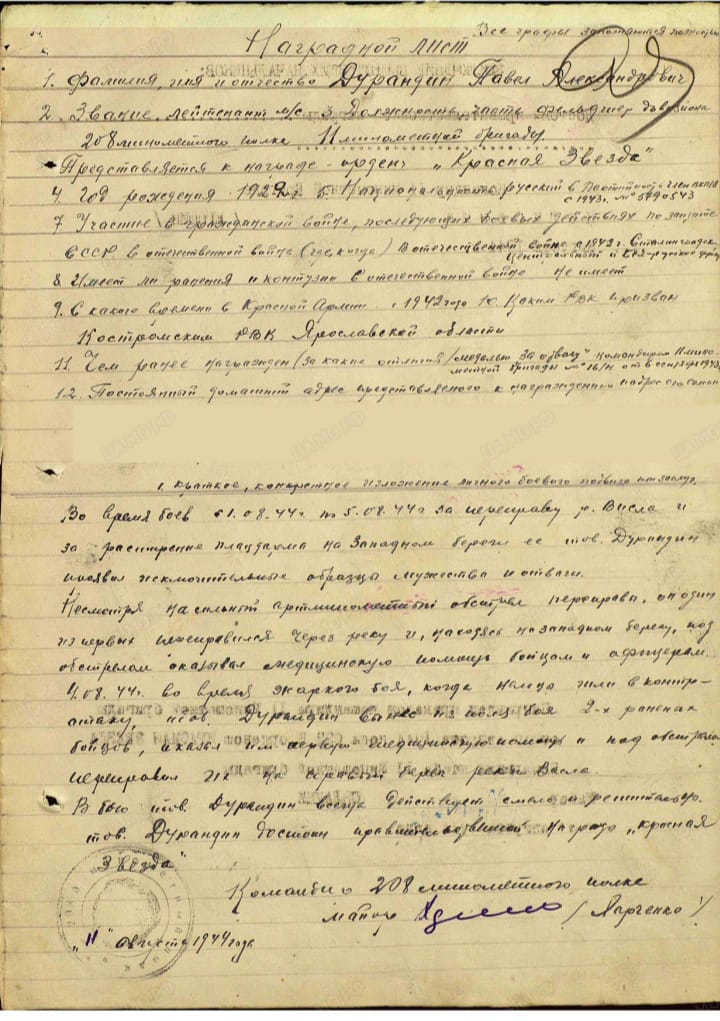 Все графы заполняются полностью
Наградной лист
1. Фамилия, имя и отчество Дурандин Павел Александрович
2. Звание лейтенант м/с 3. Должность, часть фельдшер дивизиона
208 минометного полка 11 минометной бригады
Представляется к награде - ордену "Красная Звезда"
4. Год рождения 1922г. 5. Национальность русский 6. Партийность член ВКП(б)
с 1943г. № 5790543
7. Участие в гражданской войне, последующих боевых действиях по защите
СССР в отечественной войне (где, когда) В отечественной войне с 1942г. Сталинградск.
Центральный и Белорусский фр.
8. Имеет ли ранения и контузии в отечественной войне не имеет
9. С какого времени в Красной Армии с 1942 года 10. Каким РВК призван
Костромским РВК Ярославской области
11. Чем ранее награжден (за какие отличия) медалью "За отвагу" командиром 11 мино-
метной бригады № 16/н от 6 сентября 1943г.
12. Постоянный домашний адрес представляемого к награждению и адрес его семьи
1. Краткое, конкретное изложение личного боевого подвига или заслуг.
Во время боев с 1.08.44г. по 5.08.44г за переправу р. Висла и
за расширение плацдарма на Западном берегу ее тов. Дурандин
проявил исключительные образцы мужества и отваги.
Несмотря на сильный артминометный обстрел переправы, он один
из первых переправился через реку и, находясь на западном берегу, под
обстрелом оказывал медицинскую помощь бойцам и офицерам.
4.08.44г. во время жаркого боя, когда немцы шли в контр-
атаку, тов. Дурандин вынес из поля боя 2-х раненых
бойцов, оказал им первую медицинскую помощь и под обстрелом
переправил их на правый берег реки Висла.
В бою тов. Дурандин всегда действует смело и решительно.
тов. Дурандин достоин правительственной награды "Красная
Звезда"
Командир 208 минометного полка
майор /Харченко/
"11" августа 1944 года